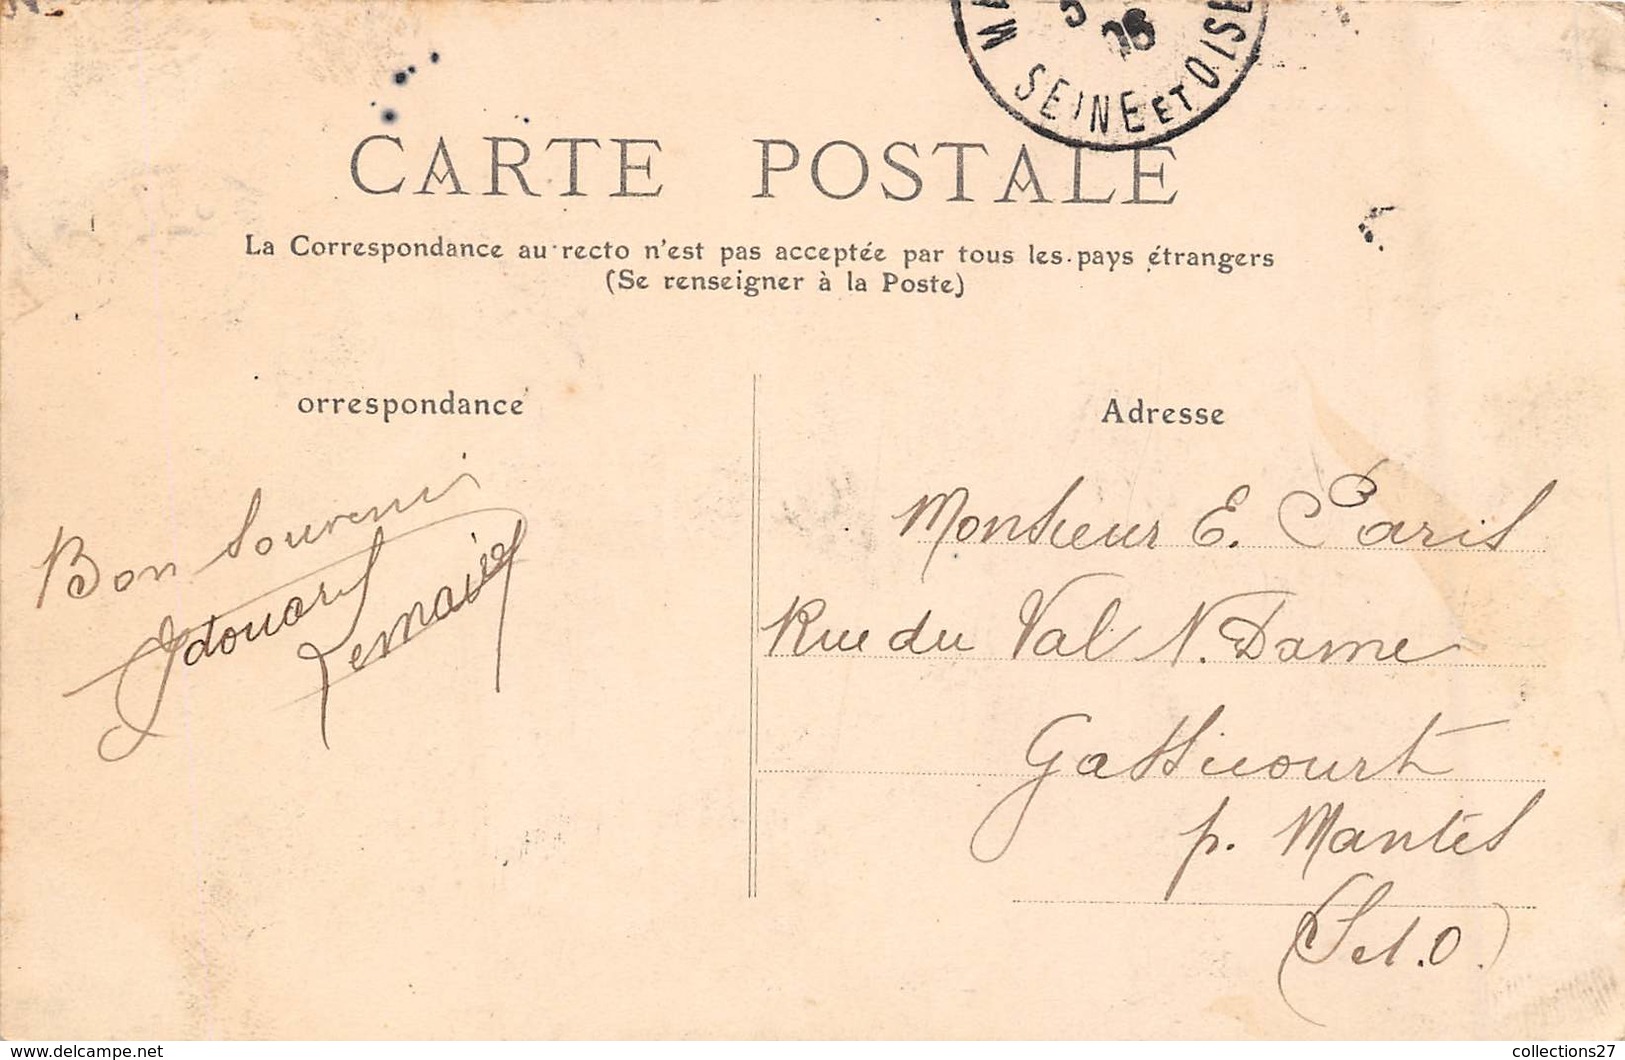 5
06
MA
SEINE ET OISE
CARTE POSTALE
La Correspondance au recto n'est pas acceptée par tous les pays étrangers
(Se renseigner à la Poste)
orrespondance
Adresse
Bon Souvenir
Edouard
Lemaire
Monsieur E. Paris
Rue du Val N. Dame
Gassicourt
p. Mantes
(S et. O.)
delcampe.net
collections27